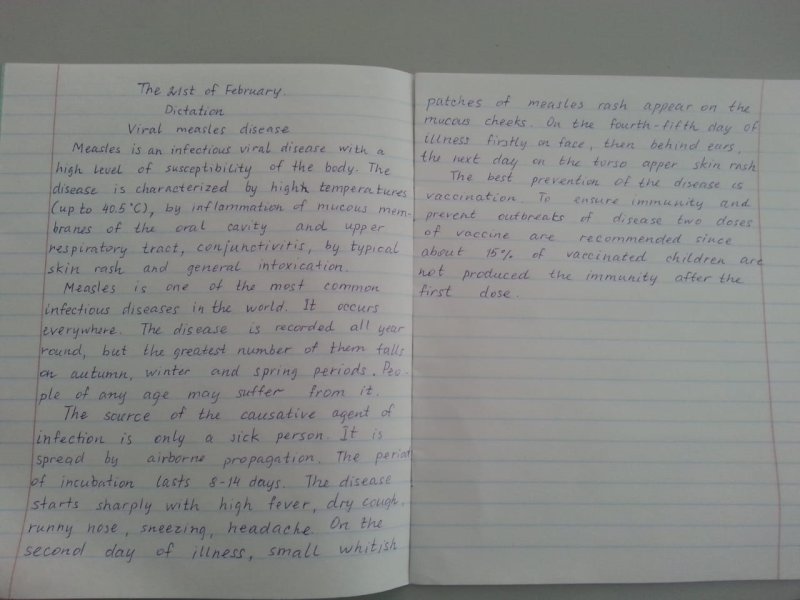 The 21st of February.
Dictation
Viral measles disease
Measles is an infectious viral disease with a
high level of susceptibility of the body. The
disease is characterized by high temperatures
(up to 40.5°C), by inflammation of mucous mem-
branes of the oral cavity and upper
respiratory tract, conjunctivitis, by typical
skin rash and general intoxication.
Measles is one of the most common
infectious diseases in the world. It occurs
everywhere. The disease is recorded all year
round, but the greatest number of them falls
on autumn, winter and spring periods. Peo-
ple of any age may suffer from it.
The source of the causative agent of
infection is only a sick person. It is
spread by airborne propagation. The period
of incubation lasts 8-14 days. The disease
starts sharply with high fever, dry cough,
runny nose, sneezing, headache. On the
second day of illness, small whitish
patches of measles rash appear on the
mucous cheeks. On the fourth-fifth day of
illness firstly on face, then behind ears,
the next day on the torso apper skin rash
The best prevention of the disease is
vaccination. To ensure immunity and
prevent outbreaks of disease two doses
of vaccine are recommended since
about 15% of vaccinated children are
not produced the immunity after the
first dose.